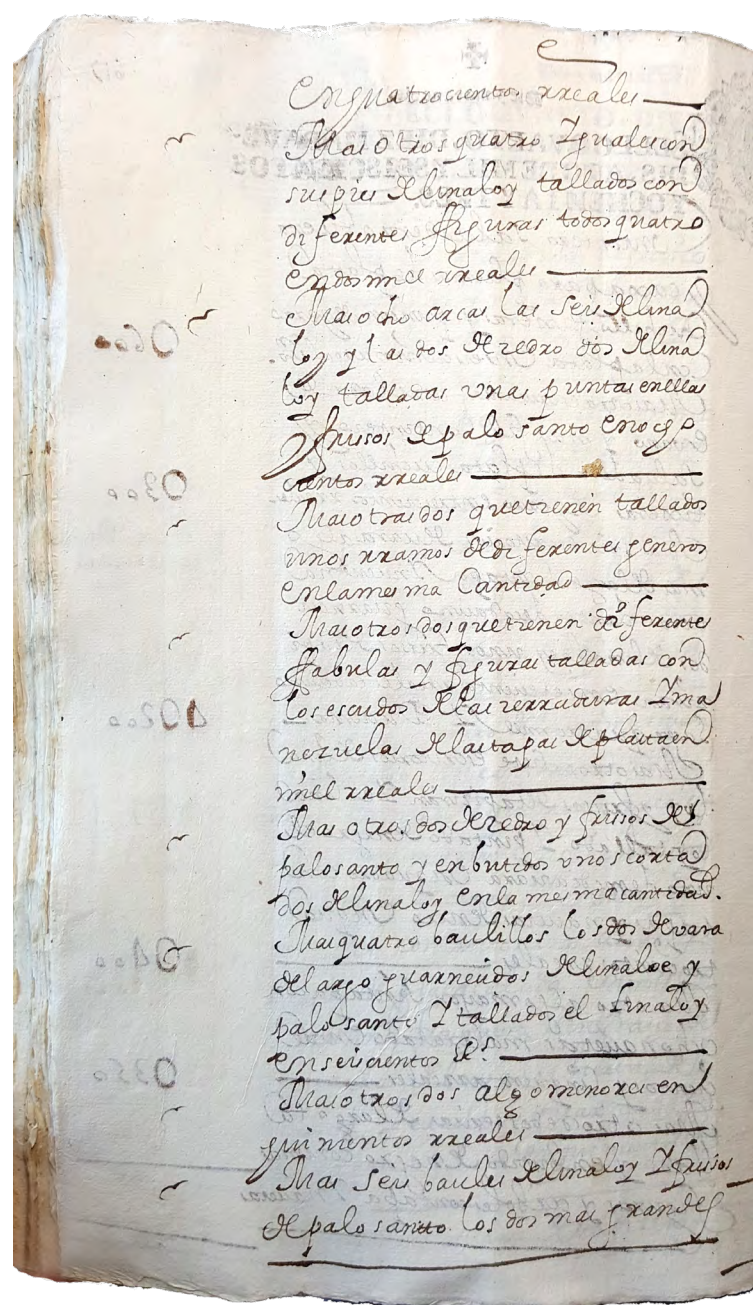 enquatrocientos rreales
Mas otros quatro Yguales con
sus pies de linaloy tallados con
diferentes ffiguras todos quatro
en dos mill rreales
Mas ocho arcas las seis de lina
loy y las dos de zedro dos de lina
loy talladas unas puntas en ellas
y frisos de palo santo en ocho
cientos rreales
Mas otras dos que tienen tallados
unos rramos de diferentes generos
en la mesma Cantidad
Mas otros dos que tienen diferentes
ffabulas y figuras talladas con
los escudos de las zerraduras Y ma
nezuelas de las tapas de plata en
mill rreales
Mas otros dos de zedro y frisos de
palo santo y enbutidos unos corta
dos de linaloy en la mesma cantidad.
Mas quatro baulillos los dos de vara
de largo guarnecidos de linaloe y
palo santo Y tallados el linaloy
en seiscientos Rs.
Mas otros dos algo menores en
quinientos rreales
Mas seis baules de linaloy Y frisos
de palo santto los dos mas grandes